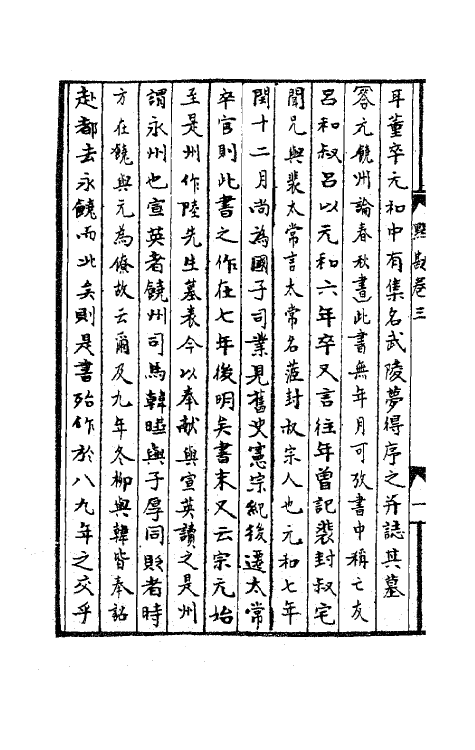 點勘卷三
一
耳董卒元和中有集名武陵夢得序之并誌其墓
答元饒州論春秋書此書無年月可攷書中稱亡友
呂和叔呂以元和六年卒又言往年曾記裴封叔宅
聞兄與裴太常言太常名茝封叔宗人也元和七年
閏十二月尚為國子司業見舊史憲宗紀後遷太常
卒官則此書之作在七年後明矣書末又云宗元始
至是州作陸先生墓表今以奉献與宣英讀之是州
謂永州也宣英者饒州司馬韓曄與子厚同貶者時
方在饒與元為僚故云爾及九年冬柳與韓皆奉詔
赴都去永饒而北矣則是書殆作於八九年之交乎